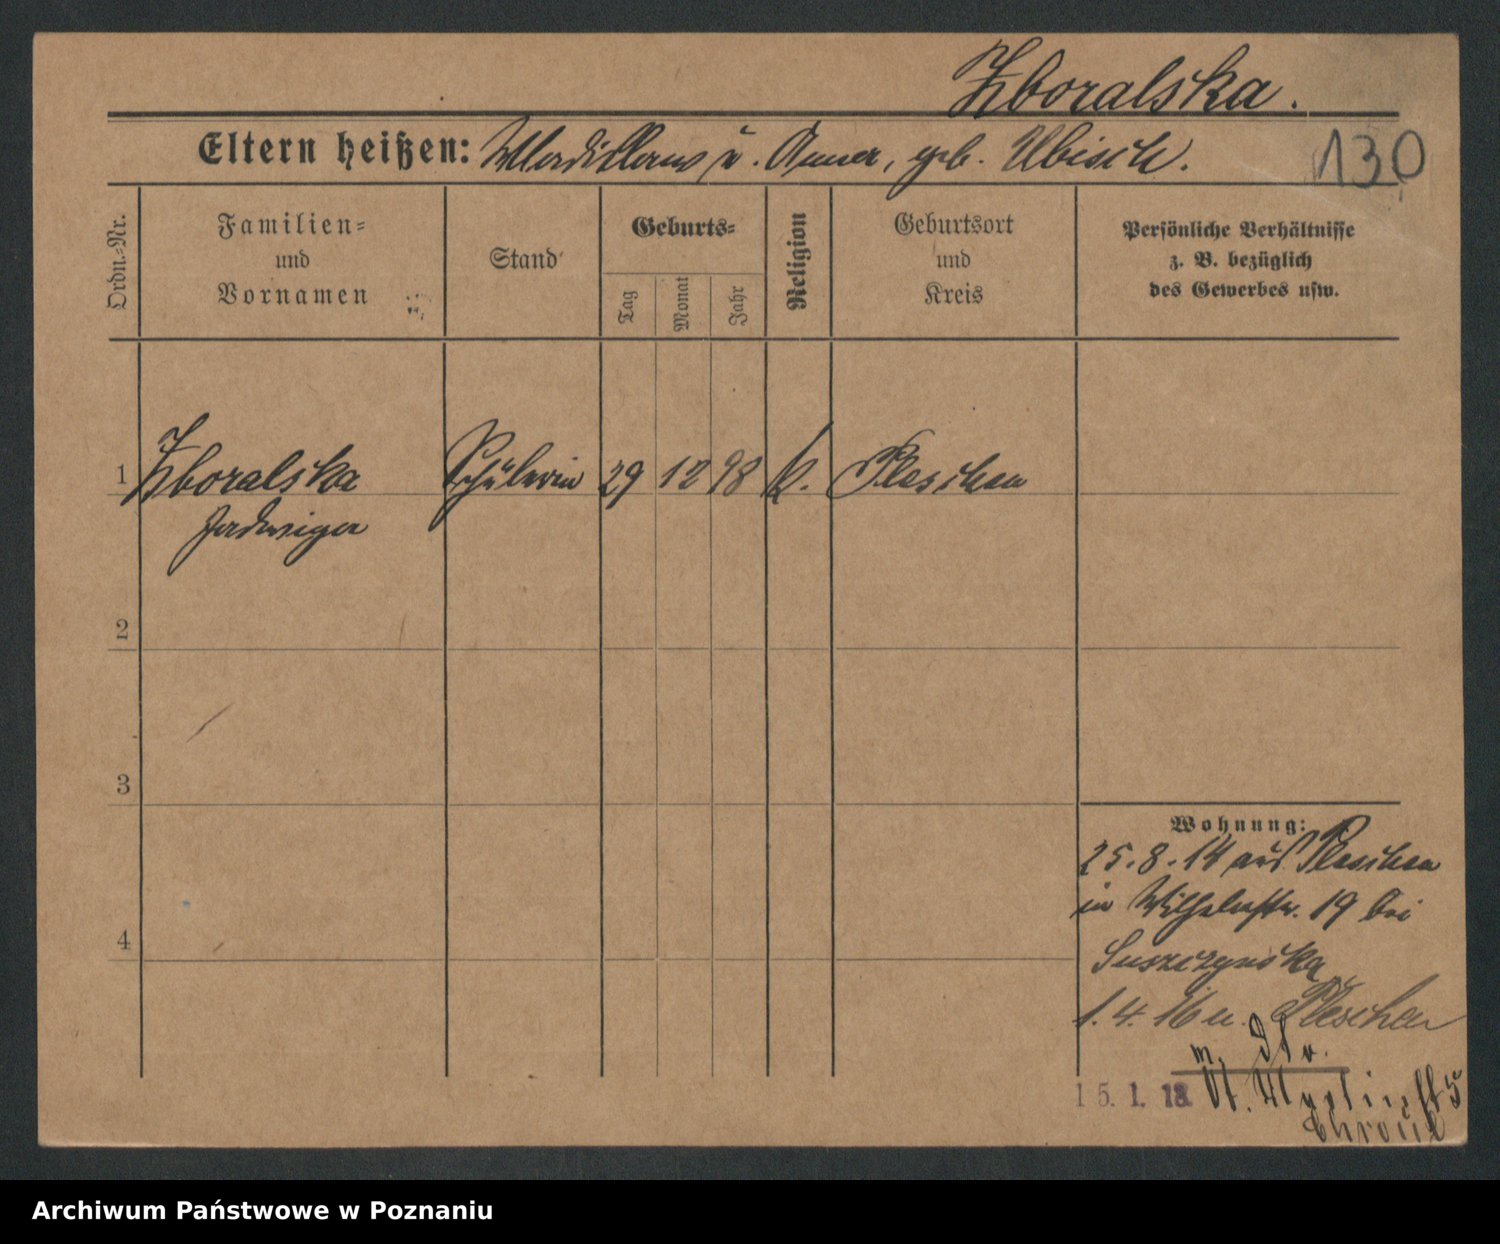 Zboralska.
Eltern heißen: Wladislaus u. Anna, geb. Ubisch.
130
Ordn.-Nr.
Familien-
und
Vornamen
Stand
Geburts-
Tag
Monat
Jahr
Religion
Geburtsort
und
Kreis
Persönliche Verhältnisse
z. B. bezüglich
des Gewerbes usw.
1 Zboralska Schülerin 29 12 98 k. Pleschen
Jadwiga
2
3
4
Wohnung:
25.8.14 aus Pleschen
in Wilhelmstr. 19 bei
Suszczynska
1.4.16 n. Pleschen
15.1.18 St. Martinstr 5
Archiwum Państwowe w Poznaniu